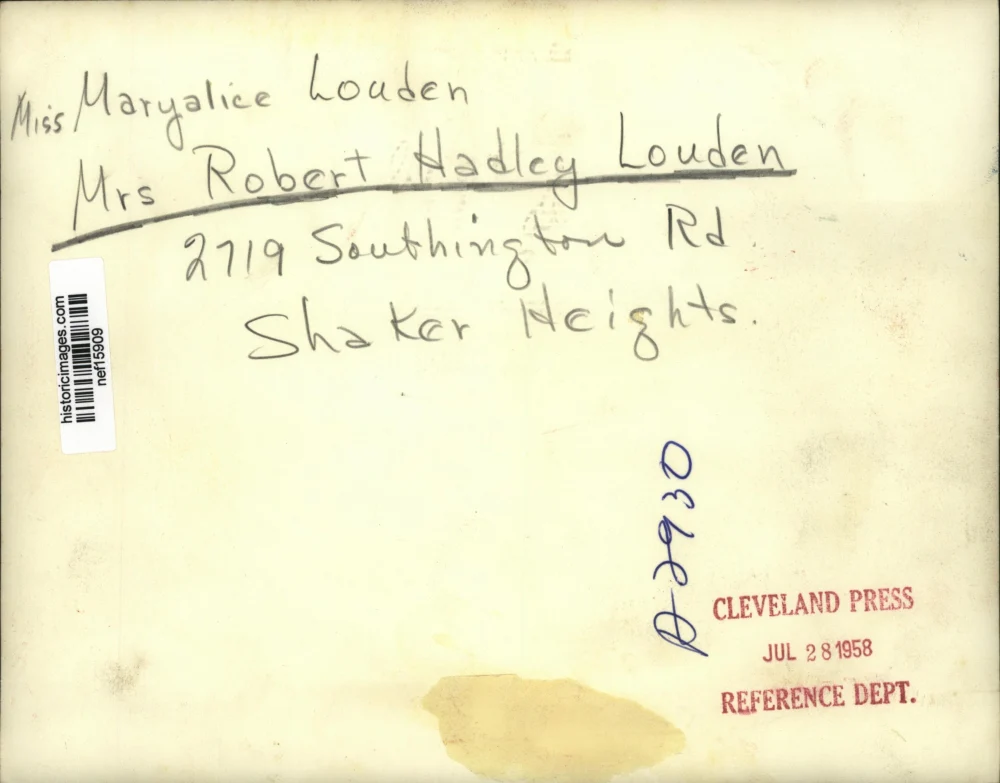 Miss Maryalice Louden
Mrs Robert Hadley Louden
2719 Southington Rd.
Shaker Heights.
historicimages.com
nef15909
A-2930
CLEVELAND PRESS
JUL 28 1958
REFERENCE DEPT.